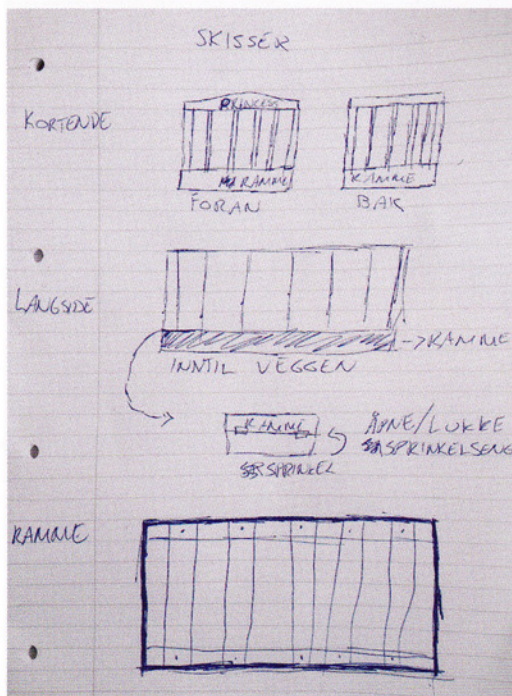 SKISSER
KORTENDE
PRINCESS
RAMME
FORAN
RAMME
BAK
LANGSIDE
->RAMME
INNTIL VEGGEN
RAMME
ÅPNE/LUKKE
SPRINKELSENG
SPRINKEL
RAMME